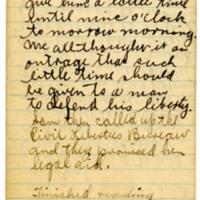 give him a little time
until nine o'clock
to morrow morning.
We all thought it an
outrage that such
little time should
be given to a man
to defend his liberty.
Sam then called up the
Civil Liberties Bureau
and they promised him
legal aid.
Finished reading